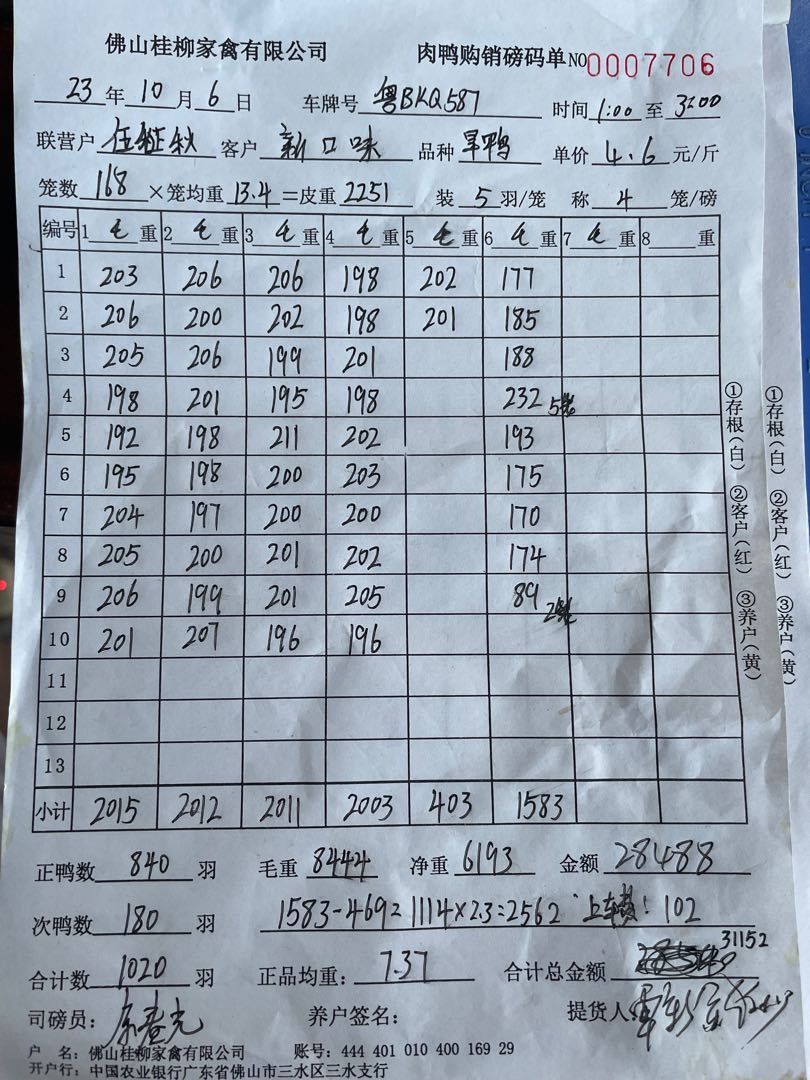 佛山桂柳家禽有限公司 肉鸭购销磅码单 NO 0007706
23 年 10 月 6 日 车牌号 粤BKQ587 时间 1:00 至 3:00
联营户 任继秋 客户 新口味 品种 旱鸭 单价 4.6 元/斤
笼数 168 ×笼均重 13.4 =皮重 2251 装 5 羽/笼 称 4 笼/磅
编号 1 毛 重 2 毛 重 3 毛 重 4 毛 重 5 毛 重 6 毛 重 7 毛 重 8 重
1 203 206 206 198 202 177
2 206 200 202 198 201 185
3 205 206 199 201 188
4 198 201 195 198 232 5笼
5 192 198 211 202 193
6 195 198 200 203 175
7 204 197 200 200 170
8 205 200 201 202 174
9 206 199 201 205 89 2笼
10 201 207 196 196
11
12
13
小计 2015 2012 2011 2003 403 1583
正鸭数 840 羽 毛重 8444 净重 6193 金额 28488
次鸭数 180 羽 1583-469=1114×2.3=2562 上车费! 102
合计数 1020 羽 正品均重: 7.37 合计总金额 31152
司磅员: 养户签名: 提货人:
户 名: 佛山桂柳家禽有限公司 账号: 444 401 010 400 169 29
开户行: 中国农业银行广东省佛山市三水区三水支行
①存根(白) ②客户(红) ③养户(黄)
①存根(白) ②客户(红) ③养户(黄)